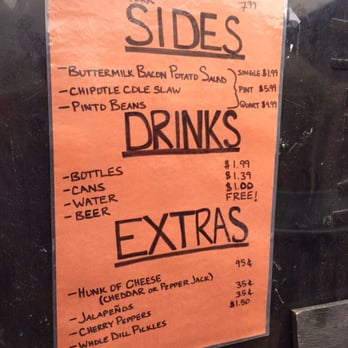 7.99
SIDES
- BUTTERMILK BACON POTATO SALAD SINGLE $1.99
- CHIPOTLE COLE SLAW PINT $5.99
- PINTO BEANS QUART $9.99
DRINKS
- BOTTLES $1.99
- CANS $1.39
- WATER $1.00
- BEER FREE!
EXTRAS
- HUNK OF CHEESE 95¢
(CHEDDAR OR PEPPER JACK)
- JALAPEÑOS 35¢
- CHERRY PEPPERS 35¢
- WHOLE DILL PICKLES $1.50